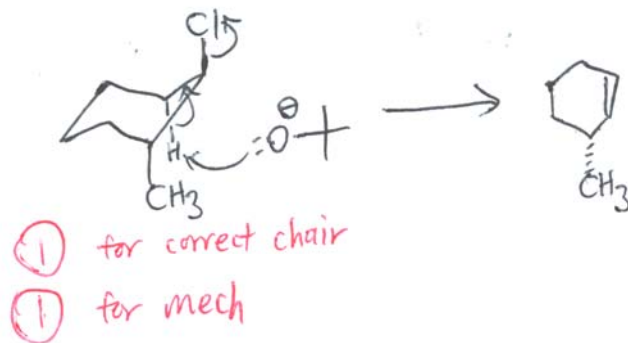 Cl
H
:O
⊖
CH3
CH3
① for correct chair
① for mech